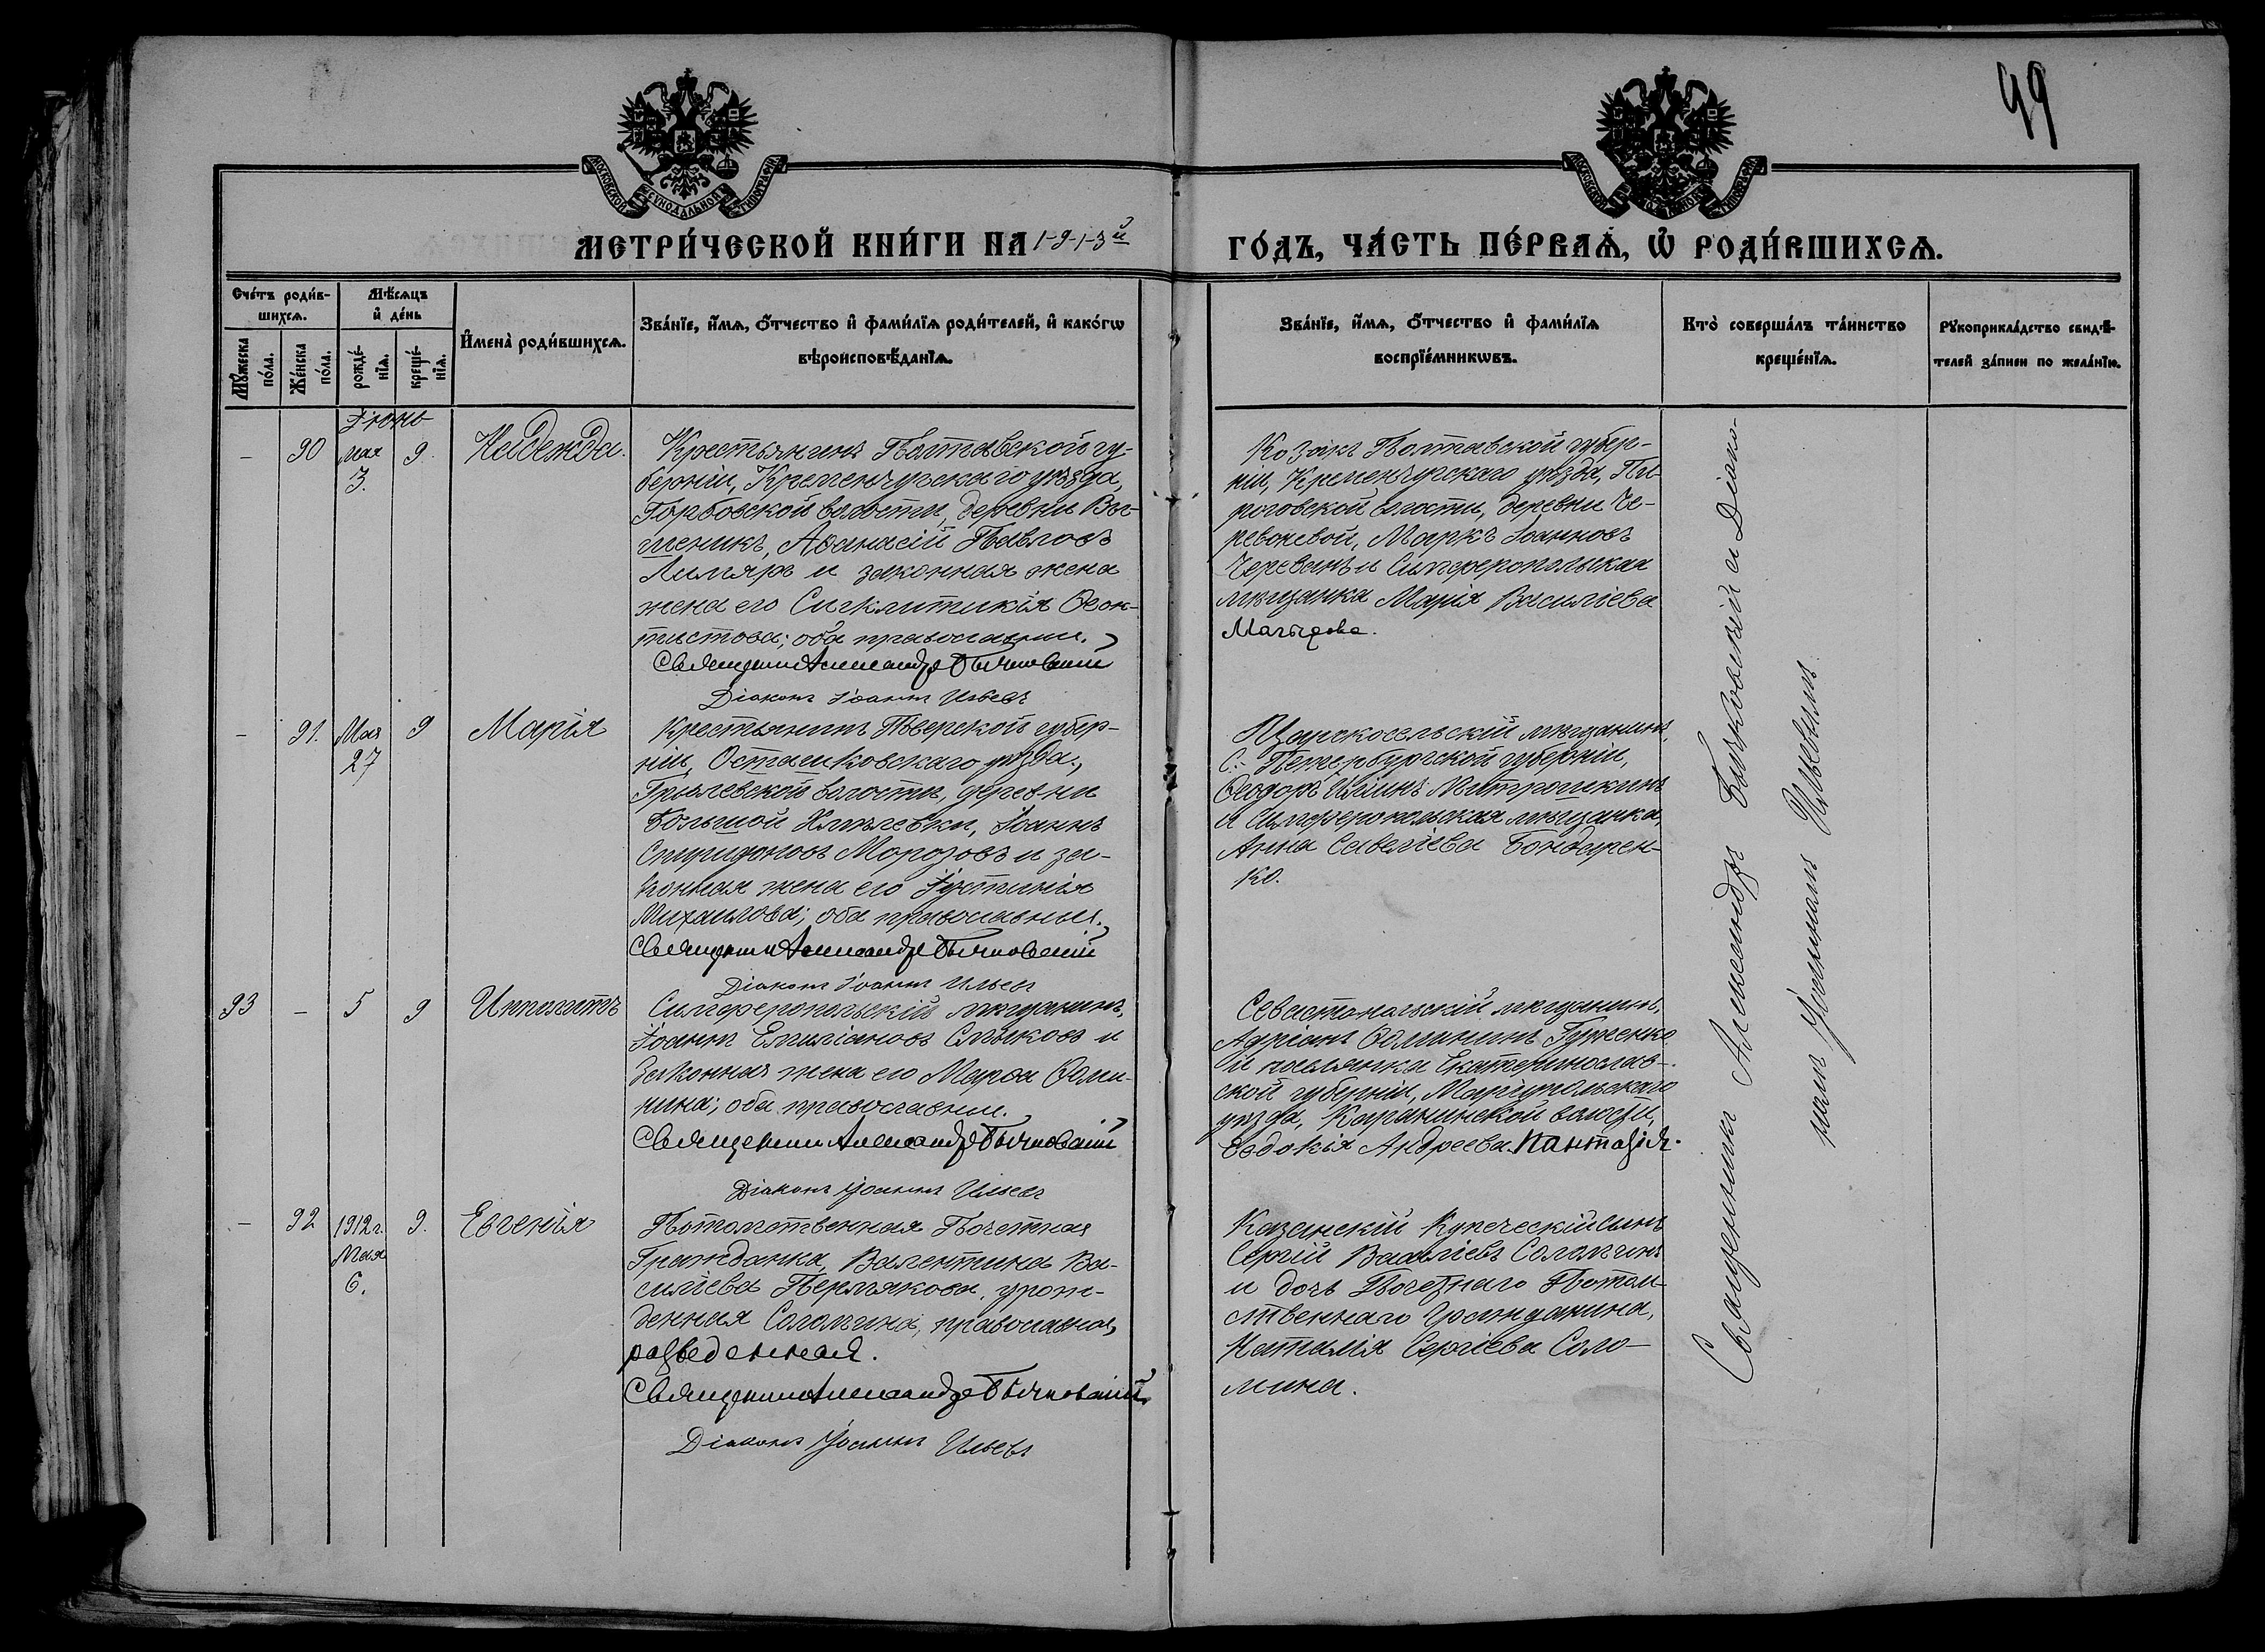 99
МОСКОВСКОЙ СУНОДАЛЬНОЙ ТИПОГРАФІИ
МЕТРИ́ЧЕСКОЙ КНИ́ГИ НА 1913й ГО́ДЪ, ЧА́СТЬ ПЕ́РВАѦ, Ѡ҆ РОДИ́ВШИХСѦ.
Сче́тъ роди́в-
шихсѧ.
Мѣ́сѧцъ
и҆ де́нь
Мꙋ́жеска
по́ла.
Же́нска
по́ла.
рожде́-
нїѧ.
креще́-
нїѧ.
И҆мена̀ роди́вшихсѧ.
Зва́нїе, и҆́мѧ, ѻ҆́тчество и҆ фамн́лїѧ роди́телей, и҆ како́гѡ
вѣроисповѣ́данїѧ.
Зва́нїе, и҆́мѧ, ѻ҆́тчество и҆ фами́лїѧ
воспрїе́мникѡвъ.
Кто̀ соверша́лъ та́инство
креще́нїѧ.
Рꙋкоприкла́дство свидѣ́-
телей за́писи по жела́нїю.
Іюнь
– 90 мая 3. 9. Надежда.
Крестьянинъ Полтавской гу-
берніи, Кременчугскаго уѣзда,
Горбовской волости, деревни Вы-
шеникъ, Аѳанасій Павловъ
Лимяръ и законная жена
жена его Сигклитикія Ѳеок-
тистова; оба православные.
Священникъ Александръ Бычковскій
Діаконъ Іоаннъ Ильевъ
Козакъ Полтавской губер-
ніи, Кременчугскаго уѣзда, Пи-
роговской волости, деревни Че-
ревоневой, Маркъ Іоанновъ
Череванъ и Симферопольская
мѣщанка Марія Василіева
– 91. Мая 27 9 Марія
Крестьянинъ Тверской губер-
ніи, Осташковскаго уѣзда,
волости, деревни
Большой Хмѣлевки, Іоаннъ
Спиридоновъ Морозовъ и за-
конная жена его Іустинія
Михаилова; оба православные.
Священникъ Александръ Бычковскій
Діаконъ Іоаннъ Ильевъ
Царскосельскій мѣщанинъ,
С.-Петербургской губерніи,
Ѳеодоръ Иліинъ Митрошкинъ
и Симферопольская мѣщанка,
Анна Савеліева Бондарен-
ко.
93 – 5 9 Ипполитъ
Симферопольскій мѣщанинъ,
Іоаннъ Емиліановъ Смыковъ и
законная жена его Марѳа Ѳоми-
нична; оба православные.
Священникъ Александръ Бычковскій
Діаконъ Іоаннъ Ильевъ
Севастопольскій мѣщанинъ,
Адріанъ Ѳоминъ Гуженко
и поселянка Екатеринослав-
ской губерніи, Маріупольскаго
уѣзда, Каранинской волости,
Евдокія Андреева Пантазія.
– 92 1912 г. Мая 6. 9. Евгенія
Потомственная Почетная
Гражданка, Валентина Ва-
силіева Пермякова, урож-
денная Соломина, православная,
разведенная.
Священникъ Александръ Бычковскій
Діаконъ Іоаннъ Ильевъ
Казанскій Купеческій сынъ
Сергій Василіевъ Соломинъ
и дочь Почетнаго Потом-
ственнаго Гражданина,
Наталія Сергіева Соло-
мина.
Священникъ Александръ Бычковскій съ Діако-
номъ Іоанномъ Ильевымъ